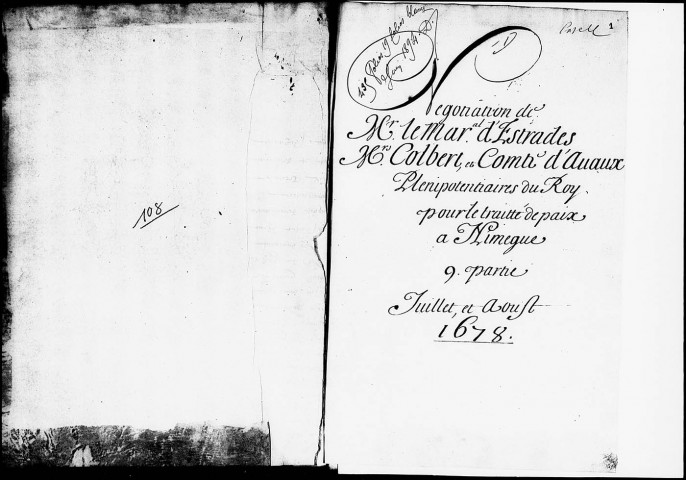 108
1
Negotiation de
Mr. le Mar.al d'Estrades
Mrs Colbert, et Comte d'Auaux
Plenipotentiaires du Roy.
pour le traitté de paix
a Nimegue
9. partie
Juillet, et Aoust
1678.